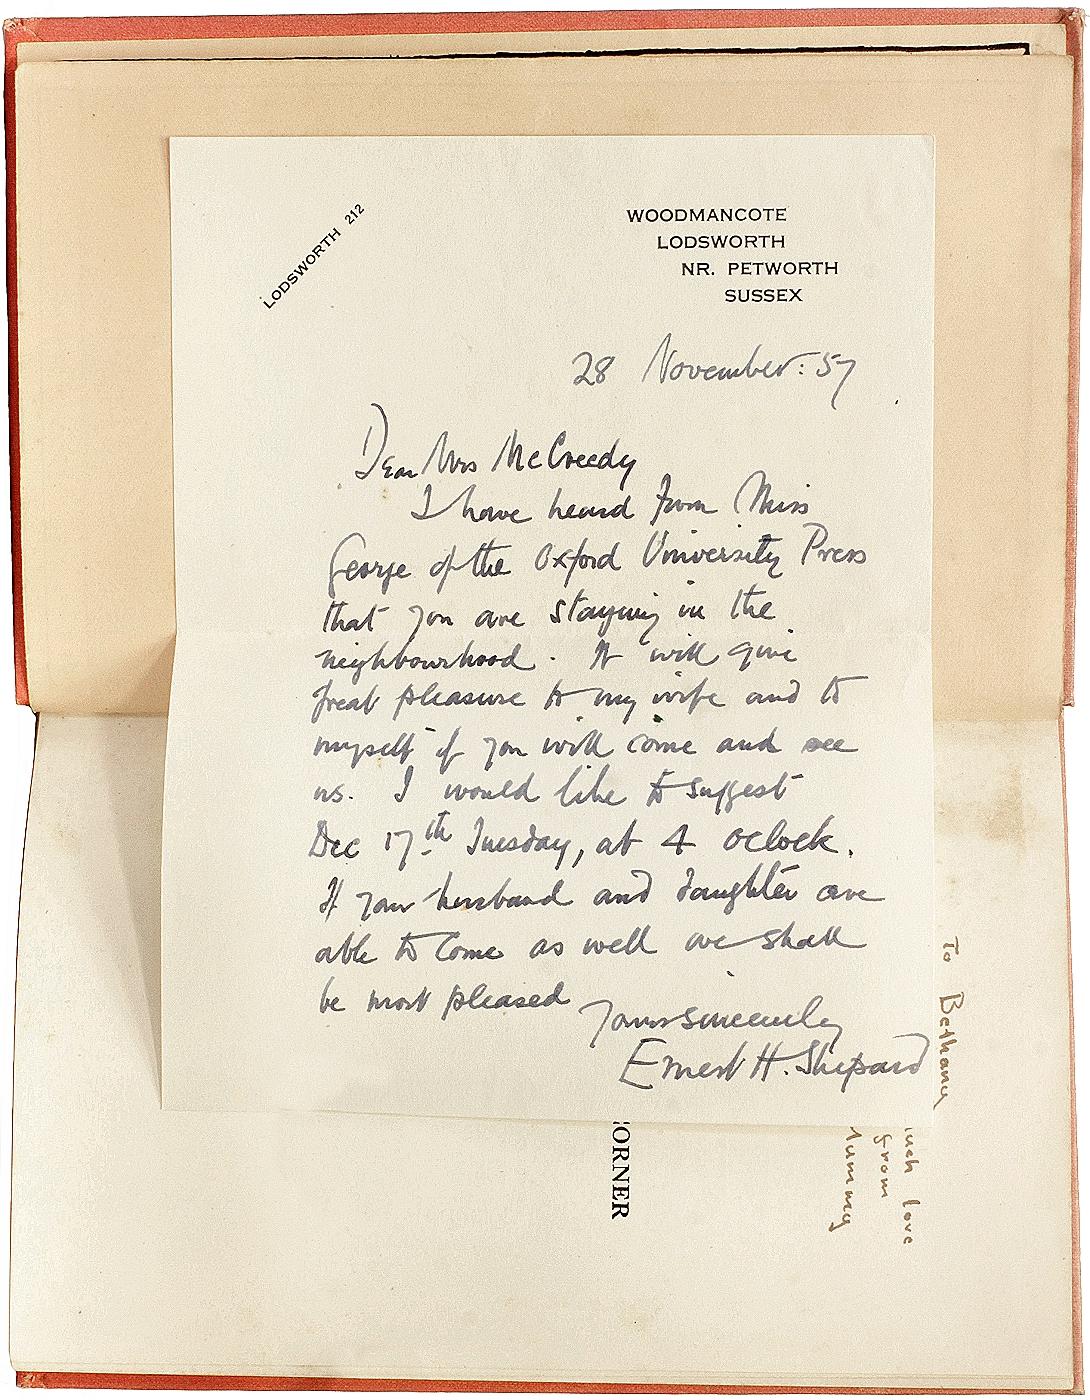 LODSWORTH 212
WOODMANCOTE
LODSWORTH
NR. PETWORTH
SUSSEX
28 November: 57
Dear Mrs McCreedy
I have heard from Miss
George of the Oxford University Press
that you are staying in the
neighbourhood. It will give
great pleasure to my wife and to
myself if you will come and see
us. I would like to suggest
Dec 17th Tuesday, at 4 oclock.
If your husband and daughter are
able to come as well we shall
be most pleased
Yours sincerely
Ernest H. Shepard
To Bethany
uch love
from
ummy
ORNER